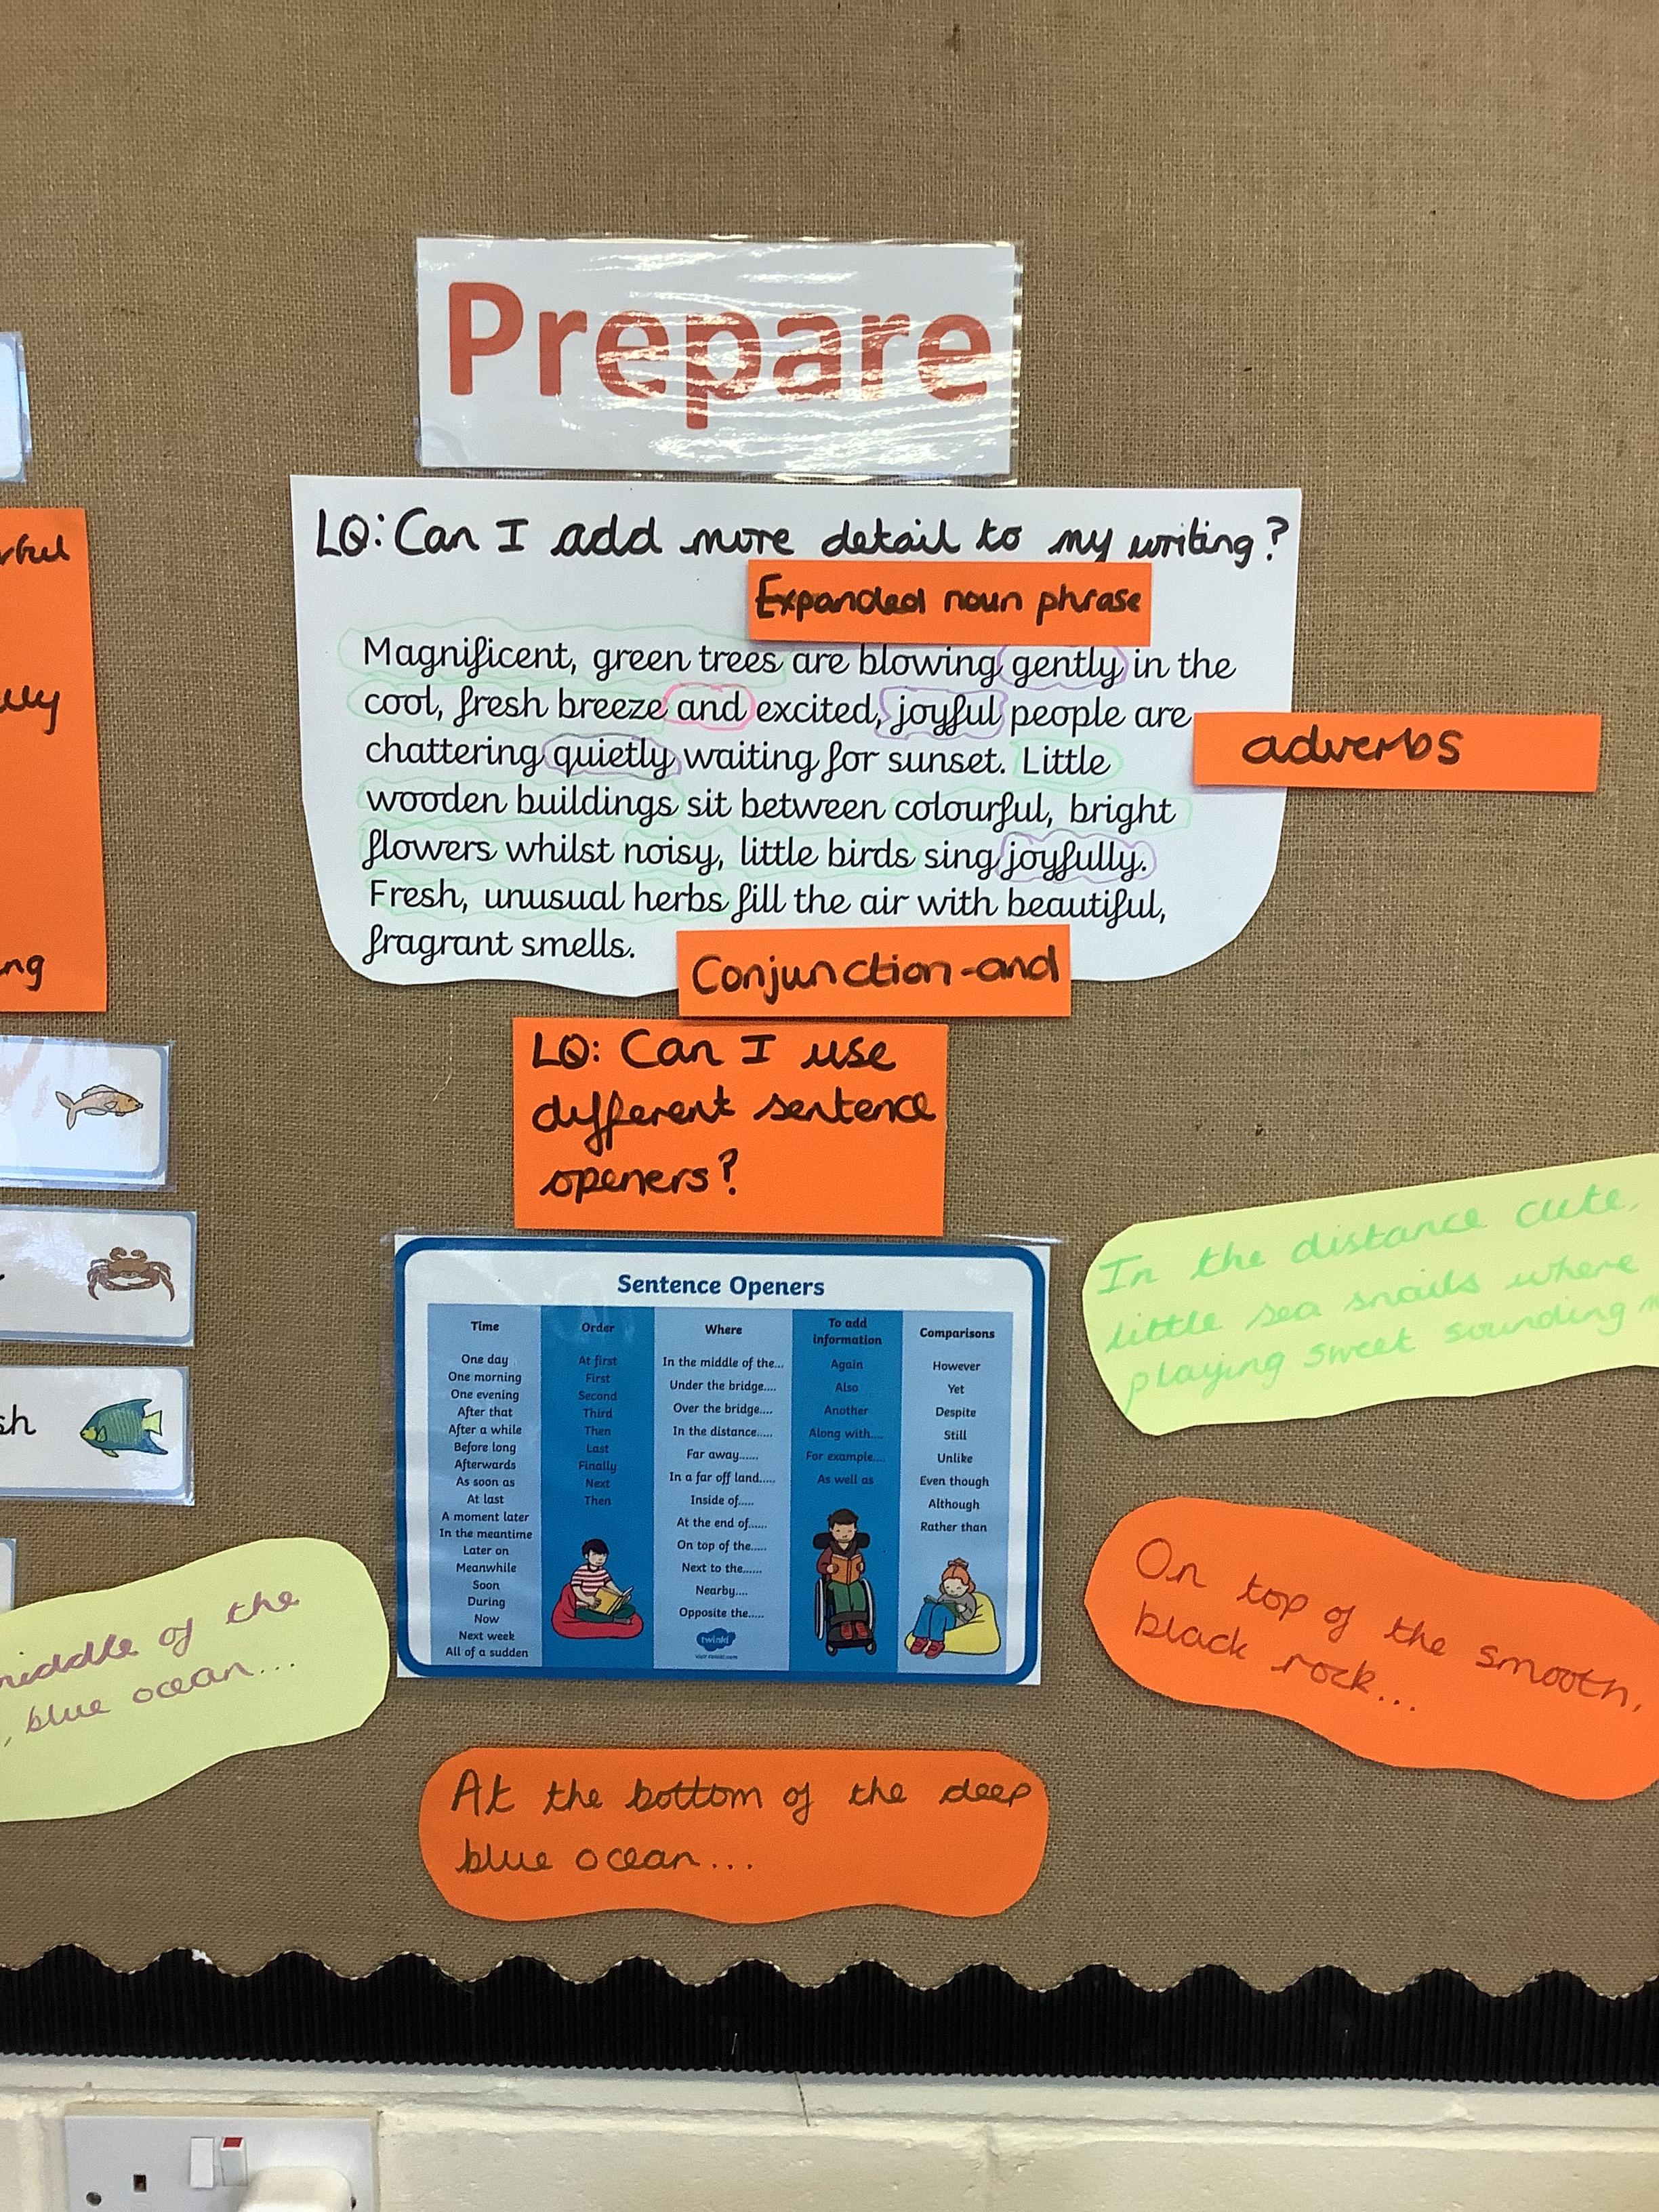 Prepare
LQ: Can I add more detail to my writing?
Expanded noun phrase
Magnificent, green trees are blowing gently in the
cool, fresh breeze and excited, joyful people are
adverbs
chattering quietly waiting for sunset. Little
wooden buildings sit between colourful, bright
flowers whilst noisy, little birds sing joyfully.
Fresh, unusual herbs fill the air with beautiful,
fragrant smells.
Conjunction-and
LQ: Can I use
different sentence
openers?
Sentence Openers
Time
One day
One morning
One evening
After that
After a while
Before long
Afterwards
As soon as
At last
A moment later
In the meantime
Later on
Meanwhile
Soon
During
Now
Next week
All of a sudden
Order
At first
First
Second
Third
Then
Last
Finally
Next
Then
Where
In the middle of the...
Under the bridge....
Over the bridge....
In the distance.....
Far away......
In a far off land.....
Inside of.....
At the end of......
On top of the.....
Next to the......
Nearby....
Opposite the.....
twinkl
To add
information
Again
Also
Another
Along with....
For example....
As well as
Comparisons
However
Yet
Despite
Still
Unlike
Even though
Although
Rather than
In the distance cute,
little sea snails where
playing sweet sounding
On top of the smooth,
black rock...
middle of the
, blue ocean...
At the bottom of the deep
blue ocean...